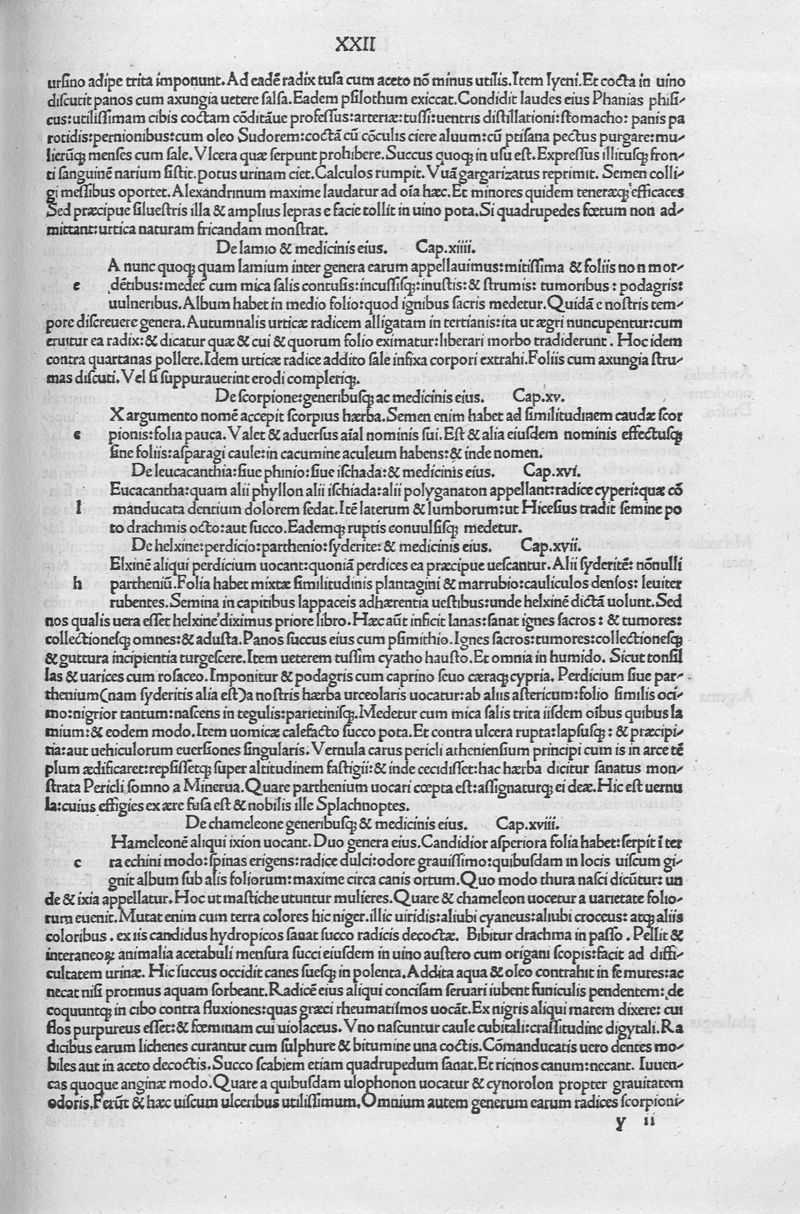 XXII
urſino adipe trita imponunt. Ad eadē radix tuſa cum aceto nō minus utilis. Item lyeni. Et cocta in uino
diſcutit panos cum axungia uetere ſalſa. Eadem pſilothum exiccat. Condidit laudes eius Phanias phiſi⸗
cus: utiliſſimam cibis coctam cōditāue profeſſus: arteriæ: tuſſi: uentris diſtillationi: ſtomacho: panis pa
rotidis: pernionibus: cum oleo Sudorem: coctā cū cōculis ciere aluum: cū ptiſana pectus purgare: mu⸗
lierūꝗ menſes cum ſale. Vlcera quæ ſerpunt prohibere. Succus quoꝗ in uſu eſt. Expreſſus illituſꝗ fron⸗
ti ſanguinē narium ſiſtit. potus urinam ciet. Calculos rumpit. Vuā gargarizatus reprimit. Semen colli⸗
gi meſſibus oportet. Alexandrinum maxime laudatur ad oīa hæc. Et minores quidem teneræꝗ efficaces
Sed præcipue ſilueſtris illa & amplius lepras e facie tollit in uino pota. Si quadrupedes fœtum non ad⸗
mittant: urtica naturam fricandam monſtrat.
De lamio & medicinis eius. Cap. xiiii.
A nunc quoꝗ quam lamium inter genera earum appellauimus: mitiſſima & foliis non mor⸗
e dētibus: medet cum mica ſalis contuſis: incuſſiſꝗ: inuſtis: & ſtrumis: tumoribus: podagris:
uulneribus. Album habet in medio folio: quod ignibus ſacris medetur. Quidā e noſtris tem⸗
pore diſcreuere genera. Autumnalis urticæ radicem alligatam in tertianis: ita ut ægri nuncupentur: cum
eruitur ea radix: & dicatur quæ & cui & quorum folio eximatur: liberari morbo tradiderunt. Hoc idem
contra quartanas pollere. Idem urticæ radice addito ſale infixa corpori extrahi. Foliis cum axungia ſtru⸗
mas diſcuti. Vel ſi ſuppurauerint erodi compleriꝗ.
De ſcorpione: generibuſꝗ ac medicinis eius. Cap. xv.
X argumento nomē accepit ſcorpius hærba. Semen enim habet ad ſimilitudinem caudæ ſcor
e pionis: folia pauca. Valet & aduerſus aīal nominis ſui. Eſt & alia eiuſdem nominis effectuſꝗ
ſine foliis: aſparagi caule: in cacumine aculeum habens: & inde nomen.
De leucacanthia: ſiue phinio: ſiue iſchada: & medicinis eius. Cap. xvi.
Eucacantha: quam alii phyllon alii iſchiada: alii polyganaton appellant: radice cyperi: quæ cō
l manducata dentium dolorem ſedat. Itē laterum & lumborum: ut Hiceſius tradit ſemine po
to drachmis octo: aut ſucco. Eademꝗ ruptis conuulſiſꝗ medetur.
De helxine: perdicio: parthenio: ſyderite: & medicinis eius. Cap. xvii.
Elxinē aliqui perdicium uocant: quoniā perdices ea præcipue ueſcantur. Alii ſyderitē: nōnulli
h partheniū. Folia habet mixtæ ſimilitudinis plantagini & marrubio: cauliculos denſos: leuiter
rubentes. Semina in capitibus lappaceis adhærentia ueſtibus: unde helxinē dictā uolunt. Sed
nos qualis uera eſſet helxine diximus priore libro. Hæc aūt inficit lanas: ſanat ignes ſacros: & tumores:
collectioneſꝗ omnes: & aduſta. Panos ſuccus eius cum pſimithio. Ignes ſacros: tumores: collectioneſꝗ
& guttura incipientia turgeſcere. Item ueterem tuſſim cyatho hauſto. Et omnia in humido. Sicut tonſil
las & uarices cum roſaceo. Imponitur & podagris cum caprino ſeuo cæraꝗ cypria. Perdicium ſiue par⸗
thenium (nam ſyderitis alia eſt) a noſtris hærba urceolaris uocatur: ab aliis aſtericum: folio ſimilis oci⸗
mo: nigrior tantum: naſcens in tegulis: parietiniſꝗ. Medetur cum mica ſalis trita iiſdem oībus quibus la
mium: & eodem modo. Item uomicæ calefacto ſucco pota. Et contra ulcera rupta: lapſuſꝗ: & præcipi⸗
tia: aut uehiculorum euerſiones ſingularis. Vernula carus pericli athenienſium principi cum is in arce tē
plum ædificaret: repſiſſetꝗ ſuper altitudinem faſtigii: & inde cecidiſſet: hac hærba dicitur ſanatus mon⸗
ſtrata Pericli ſomno a Minerua. Quare parthenium uocari cœpta eſt: aſſignaturꝗ ei deæ. Hic eſt uernu
la: cuius effigies ex ære fuſa eſt & nobilis ille Splachnoptes.
De chameleone generibuſꝗ & medicinis eius. Cap. xviii.
Hameleonē aliqui ixion uocant. Duo genera eius. Candidior aſperiora folia habet: ſerpit ī ter
c ra echini modo: ſpinas erigens: radice dulci: odore grauiſſimo: quibuſdam in locis uiſcum gi⸗
gnit album ſub alis foliorum: maxime circa canis ortum. Quo modo thura naſci dicūtur: un
de & ixia appellatur. Hoc ut maſtiche utuntur mulieres. Quare & chameleon uocetur a uarietate folio⸗
rum euenit. Mutat enim cum terra colores hic niger. illic uiridis: aliubi cyaneus: aliubi croceus: atꝗ aliis
coloribus. ex iis candidus hydropicos ſanat ſucco radicis decoctæ. Bibitur drachma in paſſo. Pellit &
interaneoꝝ animalia acetabuli menſura ſucci eiuſdem in uino auſtero cum origani ſcopis: facit ad diffi⸗
cultatem urinæ. Hic ſuccus occidit canes ſueſꝗ in polenta. Addita aqua & oleo contrahit in ſe mures: ac
necat niſi protinus aquam ſorbeant. Radicē eius aliqui conciſam ſeruari iubent funiculis pendentem: de
coquuntꝗ in cibo contra fluxiones: quas græci rheumatiſmos uocāt. Ex nigris aliqui marem dixere: cui
flos purpureus eſſet: & fœminam cui uiolaceus. Vno naſcuntur caule cubitali: craſſitudine digytali. Ra
dicibus earum lichenes curantur cum ſulphure & bitumine una coctis. Cōmanducatis uero dentes mo⸗
biles aut in aceto decoctis. Succo ſcabiem etiam quadrupedum ſanat. Et ricinos canum: necant. Iuuen⸗
cas quoque anginæ modo. Quare a quibuſdam ulophonon uocatur & cynorolon propter grauitatem
odoris. Ferūt & hæc uiſcum ulceribus utiliſſimum. Omnium autem generum earum radices ſcorpioni⸗
y ii